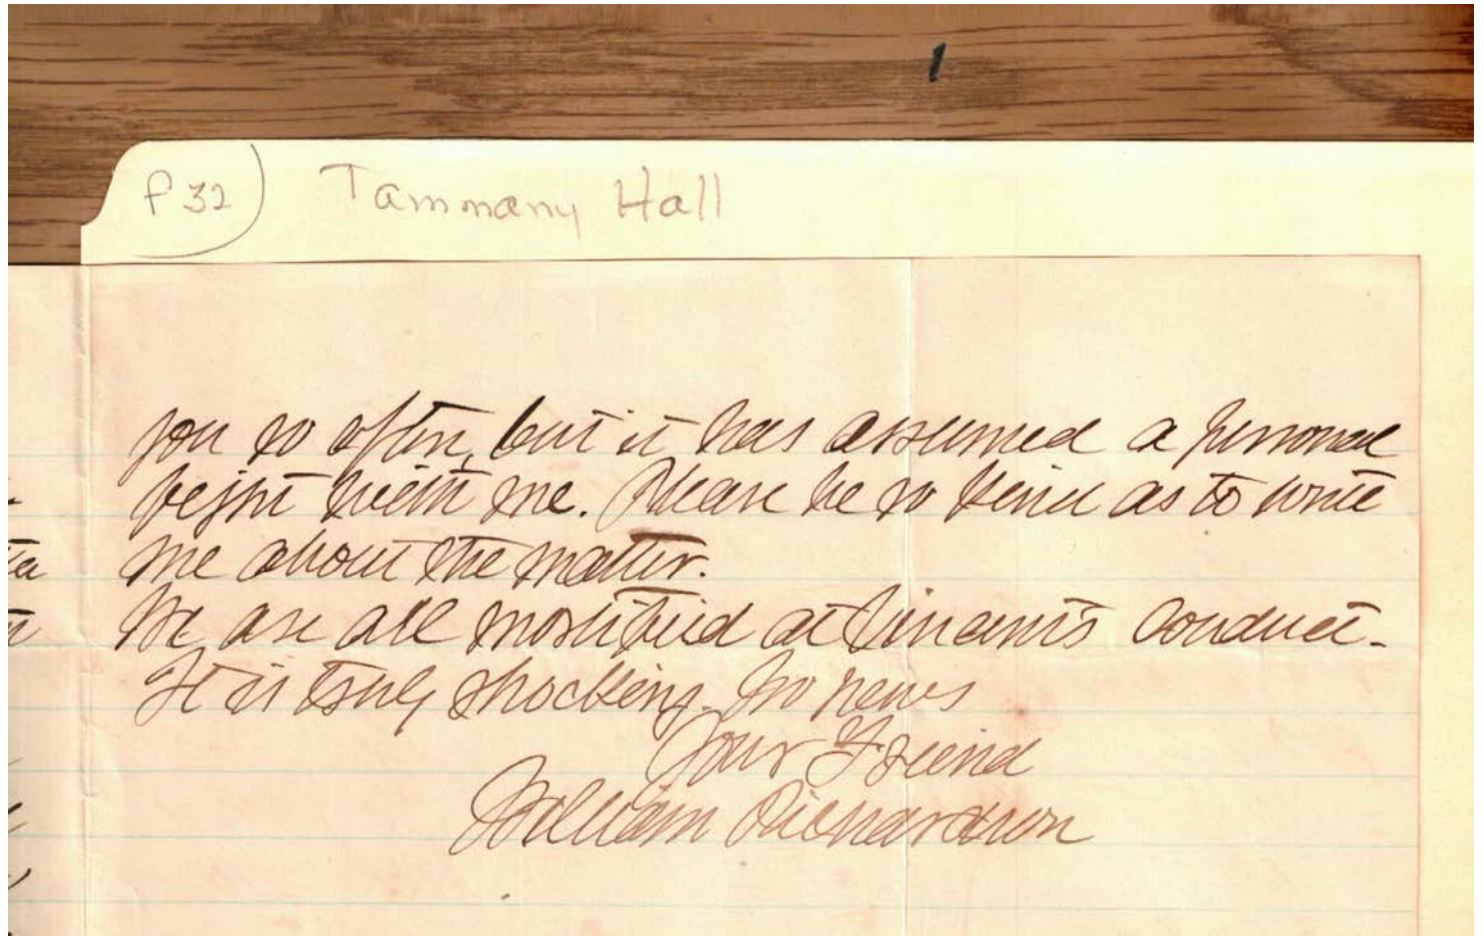 P 32) Tammany Hall
you so often, but it has assumed a personal
fight with me. Please be so kind as to write
me about the matter.
We are all mortified at Vincent's conduct.
It is truly shocking. No news
Your Friend
William Richardson